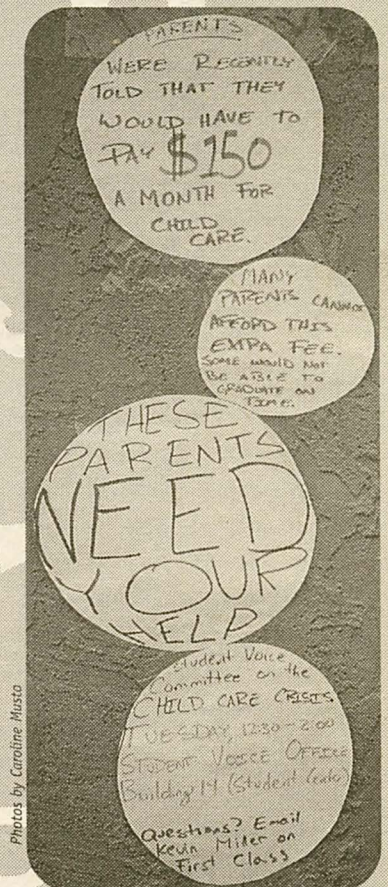 PARENTS
WERE RECENTLY
TOLD THAT THEY
WOULD HAVE TO
PAY $150
A MONTH FOR
CHILD
CARE.
MANY
PARENTS CANNOT
AFFORD THIS
EXTRA FEE.
SOME WOULD NOT
BE ABLE TO
GRADUATE ON
TIME.
THESE
PARENTS
NEED
YOUR
HELP
Student Voice
Committee on the
CHILD CARE CRISIS
TUESDAY, 12:30-2:00
STUDENT VOICE OFFICE
Building 14 (Student Center)
Questions? Email
Kevin Miller on
First Class
Photos by Caroline Musto